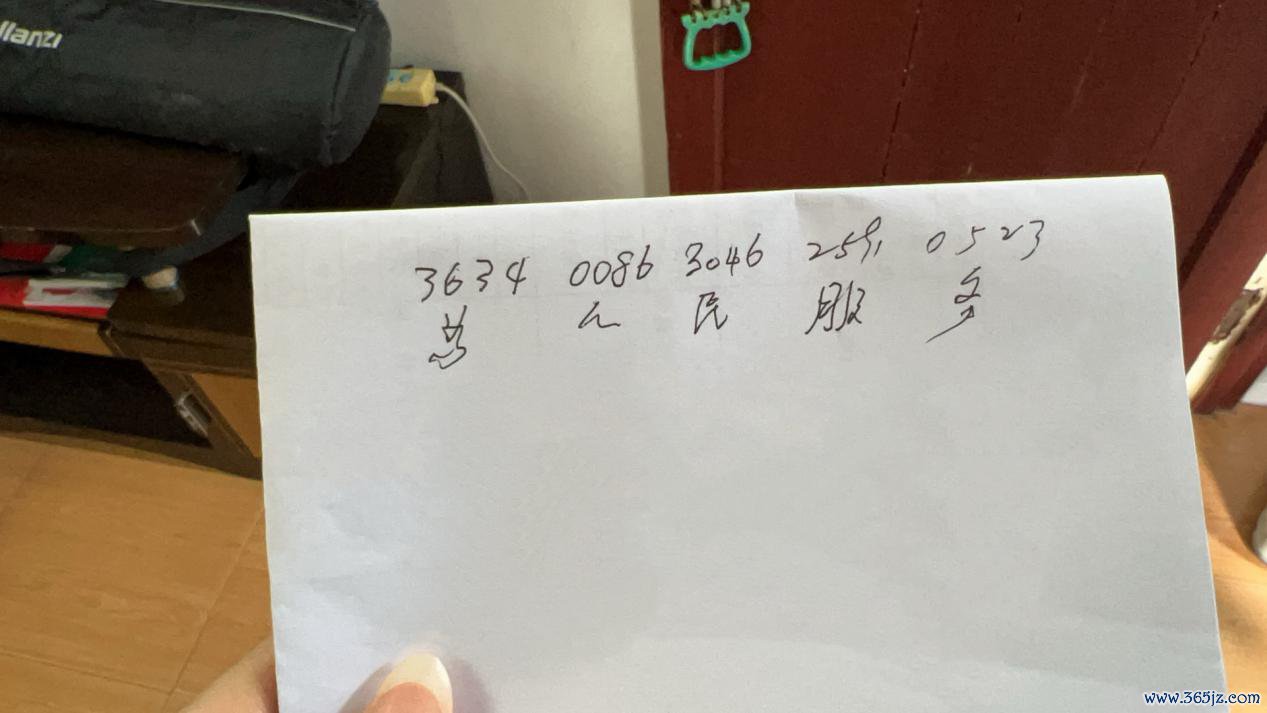 llanzi
3634 0086 3046 2591 0523
为 人 民 服 务
www.365jz.com